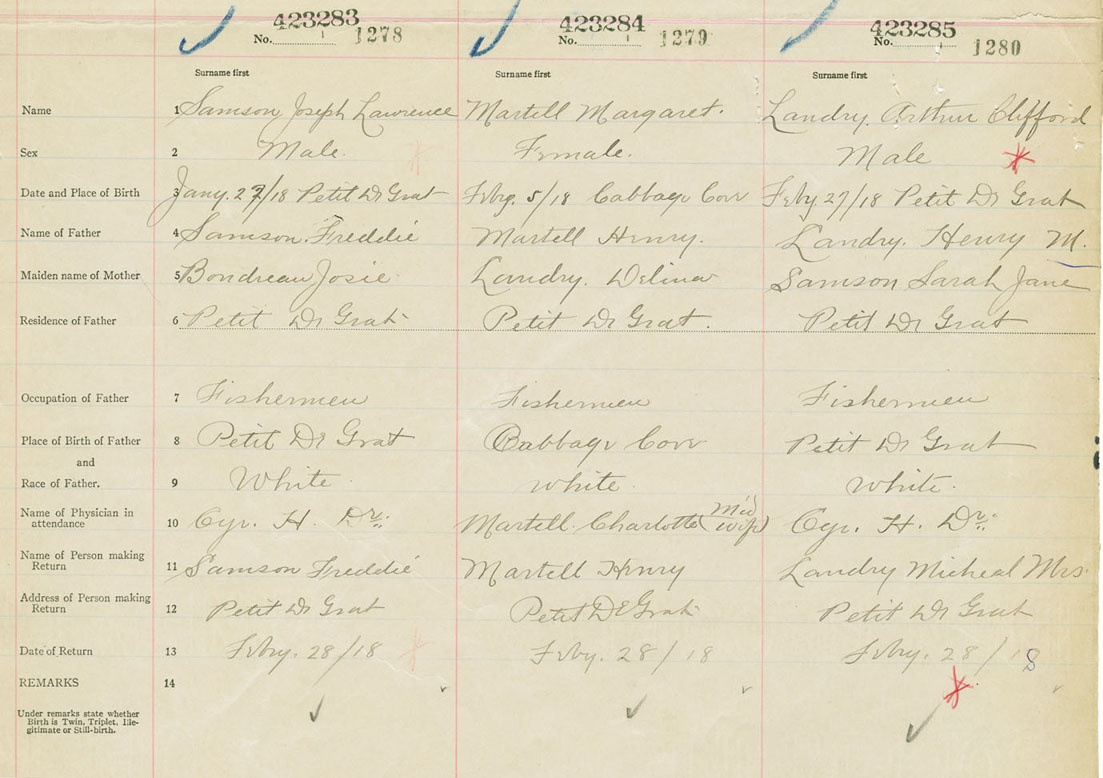 423283 423284 423285
No. 1278 No. 1279 No. 1280
Surname first Surname first Surname first
Name 1 Samson Joseph Lawrence Martell Margaret. Landry. Arthur Clifford
Sex 2 Male. Female. Male
Date and Place of Birth 3 Jany. 27/18 Petit De Grat Febry. 5/18 Cabbage Cove Feby 27/18 Petit De Grat
Name of Father 4 Samson. Freddie Martell Henry. Landry. Henry M.
Maiden name of Mother 5 Boudreau Josie. Landry. Delina Samson Sarah Jane
Residence of Father 6 Petit De Grat Petit De Grat. Petit De Grat
Occupation of Father 7 Fishermen Fishermen Fishermen
Place of Birth of Father 8 Petit De Grat Cabbage Cove Petit De Grat
and
Race of Father. 9 White white. white.
Name of Physician in
attendance 10 Cyr. H. Dr. Martell Charlotte (Mid wife) Cyr. H. Dr.
Name of Person making
Return 11 Samson Freddie Martell Henry Landry Micheal Mrs.
Address of Person making
Return 12 Petit De Grat Petit De Grat Petit De Grat
Date of Return 13 Febry. 28/18 Feby. 28/18 Febry. 28/18
REMARKS 14
Under remarks state whether
Birth is Twin, Triplet, Ille-
gitimate or Still-birth.